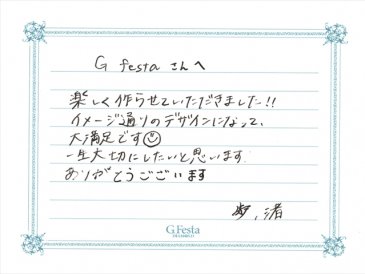 G festa さんへ
楽しく作らせていただきました!!
イメージ通りのデザインになって、
大満足です
一生大切にしたいと思います
ありがとうございます
渚
G.Festa